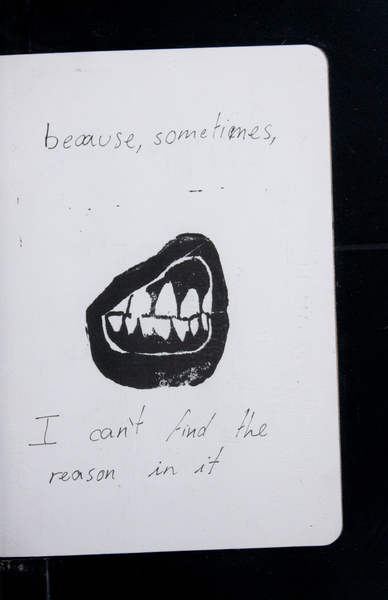 because, sometimes,
I can't find the
reason in it